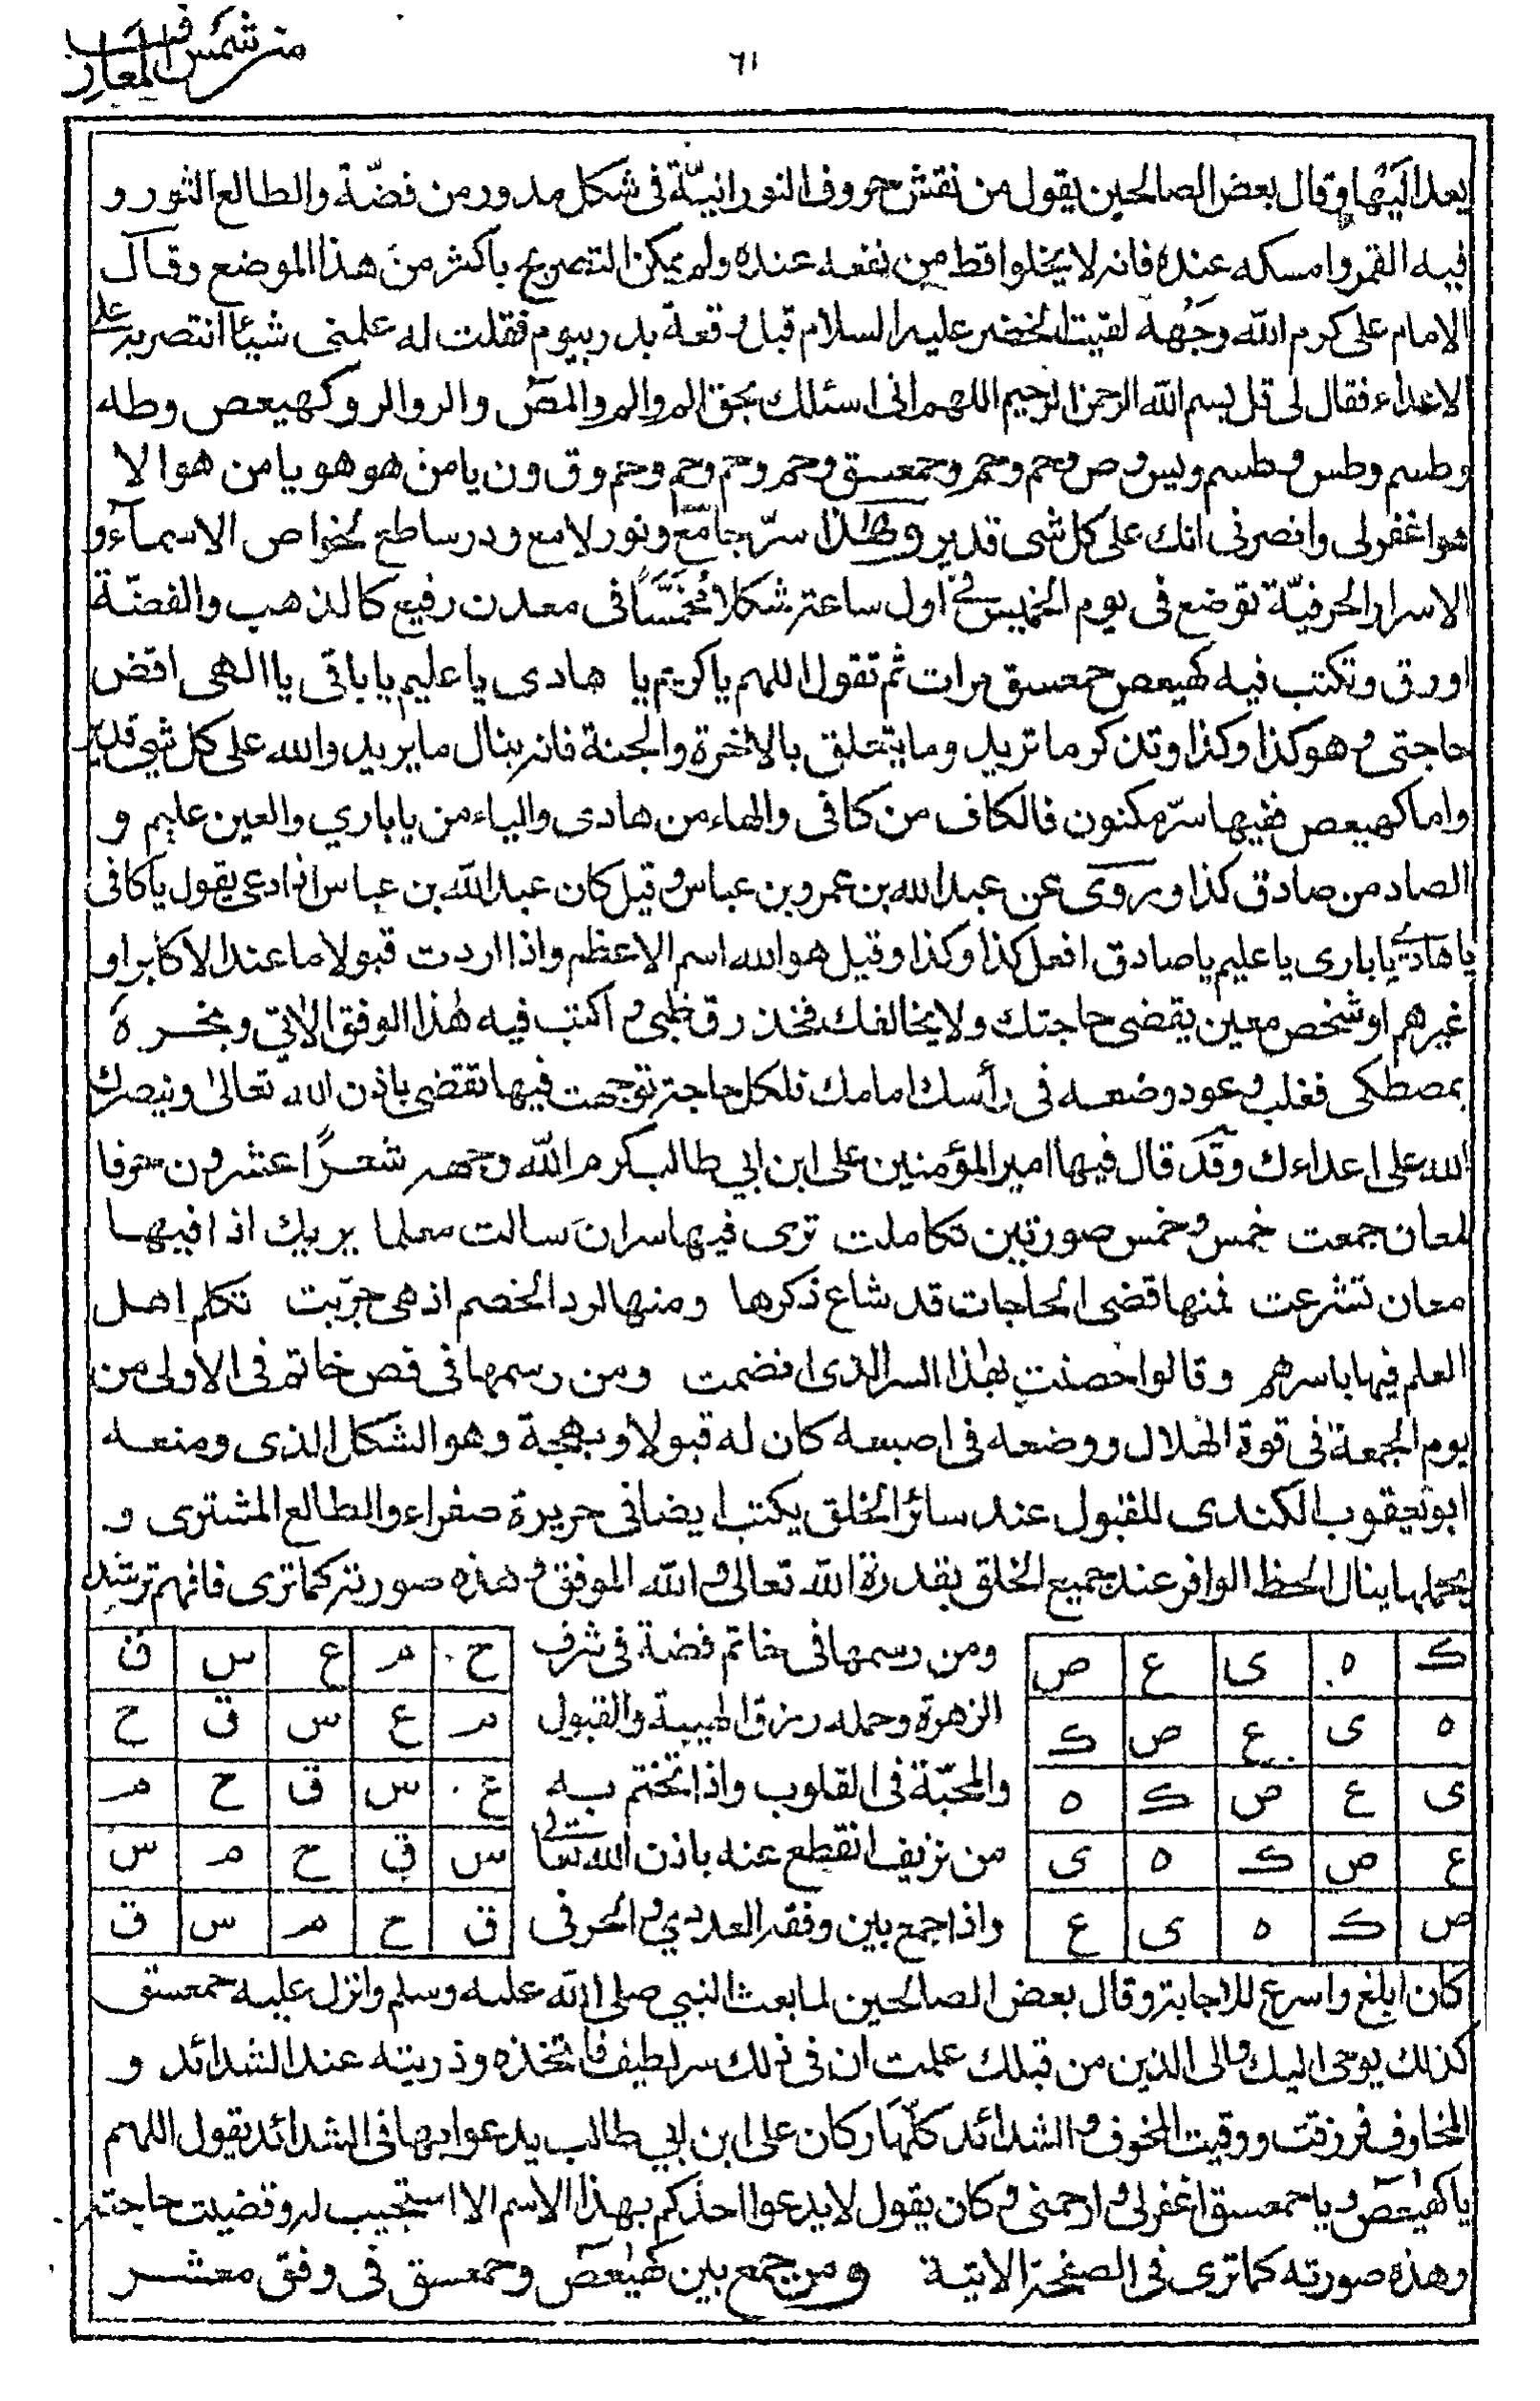 من شمس المعارف
٦١
يعد اليها وقال بعض الصالحين يقول من نقش حروف النورانيّة فى شكل مدور من فضّة والطالع الثور و
فيه القمر وامسكه عنده فانه لا يخلوا قط من نفعه عنده ولم يمكن التصريح باكثر من هذا الموضع وقال
الامام على كرم الله وجهه لقيت الخضر عليه السلام قبل وقعة بدر بيوم فقلت له علمنى شيئا انتصر به على
الاعداء فقال لى قل بسم الله الرحمن الرحيم اللهم انى اسئلك بحق الم والم والمص والر والر وكهيعص وطه
وطسم وطس وطسم ويس وص وحم وحم وحمعسق وحم وحم وحم وحم وق ون يا من هو هو يا من هو الا
هو اغفر لى وانصرنى انك على كل شى قدير وهذا سرّ جامع ونور لامع ودر ساطع لخواص الاسماء و
الاسرار الحرفيّة توضع فى يوم الخميس فى اول ساعة شكلا مخمسًا فى معدن رفيع كالذهب والفضّة
او رق وتكتب فيه كهيعص حمعسق مرات ثم تقول اللهم يا كريم يا هادى يا عليم يا باقى يا الهى اقض
حاجتى وهو كذا وكذا وتذكر ما تريد وما يتعلق بالاخرة والجنة فانه ينال ما يريد والله على كل شيء قدير
واما كهيعص ففيها سرّ مكنون فالكاف من كافى والهاء من هادى والياء من يا باري والعين عليم و
الصاد من صادق كذا وروى عن عبد الله بن عمر وبن عباس وقيل كان عبد الله بن عباس اذا دعى يقول يا كافى
يا هادي يا بارى يا عليم يا صادق افعل كذا وكذا وقيل هو الله اسم الاعظم واذا اردت قبولا ما عند الاكابر او
غيرهم او شخص معين يقضى حاجتك ولا يخالفك فخذ رق ظبى واكتب فيه هذا الوفق الاتي وبخره
بمصطكى وعود وضعه فى رأسك امامك فلكل حاجة توجهت فيها تقضى باذن الله تعالى وينصرك
الله على اعداءك وقد قال فيها امير المؤمنين على ابن ابي طالب كرم الله وجهه شعرًا عشرون حروفا
لمعان جمعت خمس وخمس صورتين تكاملت ترى فيها سر ان سالت معلما يريك اذا فيها
معان تشرعت فمنها قضى الحاجات قد شاع ذكرها ومنها لرد الخصم اذ هى جرّبت تكلم اهل
العلم فيها باسرهم وقالوا خصنت بهذا السر الذى انضمت ومن رسمها فى فص خاتم فى الاولى من
يوم الجمعة فى قوة الهلال ووضعه فى اصبعه كان له قبولا وبهجة وهو الشكل الذى ومنعه
ابو يعقوب الكندى للقبول عند سائر الخلق يكتب ايضا فى حريرة صفراء والطالع المشترى و
يحملها ينال الحظ الوافر عند جميع الخلق بقدرة الله تعالى والله الموفق وهذه صورته كما ترى فافهم ترشد
ك ه ى ع ص
ه ى ع ص ك
ى ع ص ك ه
ع ص ك ه ى
ص ك ه ى ع
ومن رسمها فى خاتم فضة فى شرف
الزهرة وحمله رزق الهيبة والقبول
والمحبّة فى القلوب واذا تختم به
من نزيف انقطع عنه باذن الله تعالى
واذا جمع بين وفقه العددي والحرفى
ح م ع س ق
م ع س ق ح
ع س ق ح م
س ق ح م س
ق ح م س ق
كان ابلغ واسرع للاجابة وقال بعض الصالحين لما بعث النبي صلى الله عليه وسلم وانزل عليه حمعسق
كذلك يوحى اليك والى الذين من قبلك علمت ان فى ذلك سر لطيف فاتخذه وذريته عند الشدائد و
المخاوف فرزقت ووقيت المخوف والشدائد كلّها وكان على ابن ابي طالب يدعوا بها فى الشدائد يقول اللهم
يا كهيعص ويا حمعسق اغفر لى وارحمنى وكان يقول لا يدعوا احدكم بهذا الاسم الا استجيب له وقضيت حاجته
وهذه صورته كما ترى فى الصفحة الاتية ومن جمع بين كهيعص وحمعسق فى وفق معشر